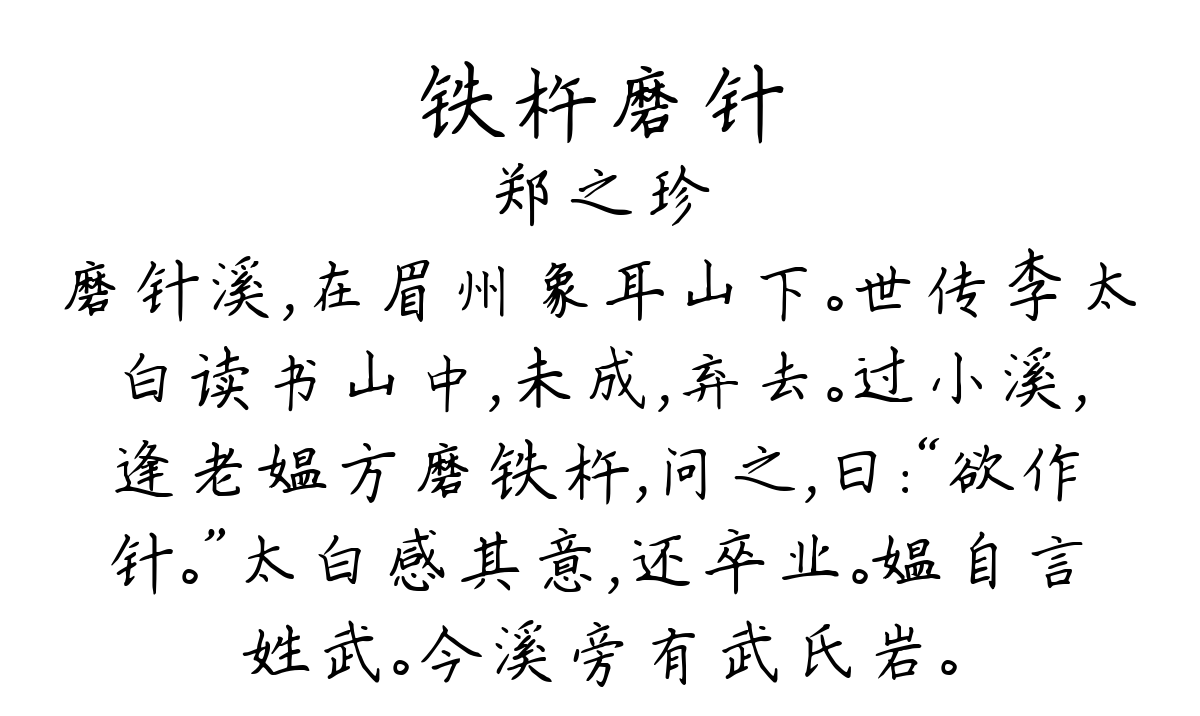 铁杵磨针
郑之珍
磨针溪,在眉州象耳山下。世传李太
白读书山中,未成,弃去。过小溪,
逢老媪方磨铁杵,问之,曰:“欲作
针。”太白感其意,还卒业。媪自言
姓武。今溪旁有武氏岩。